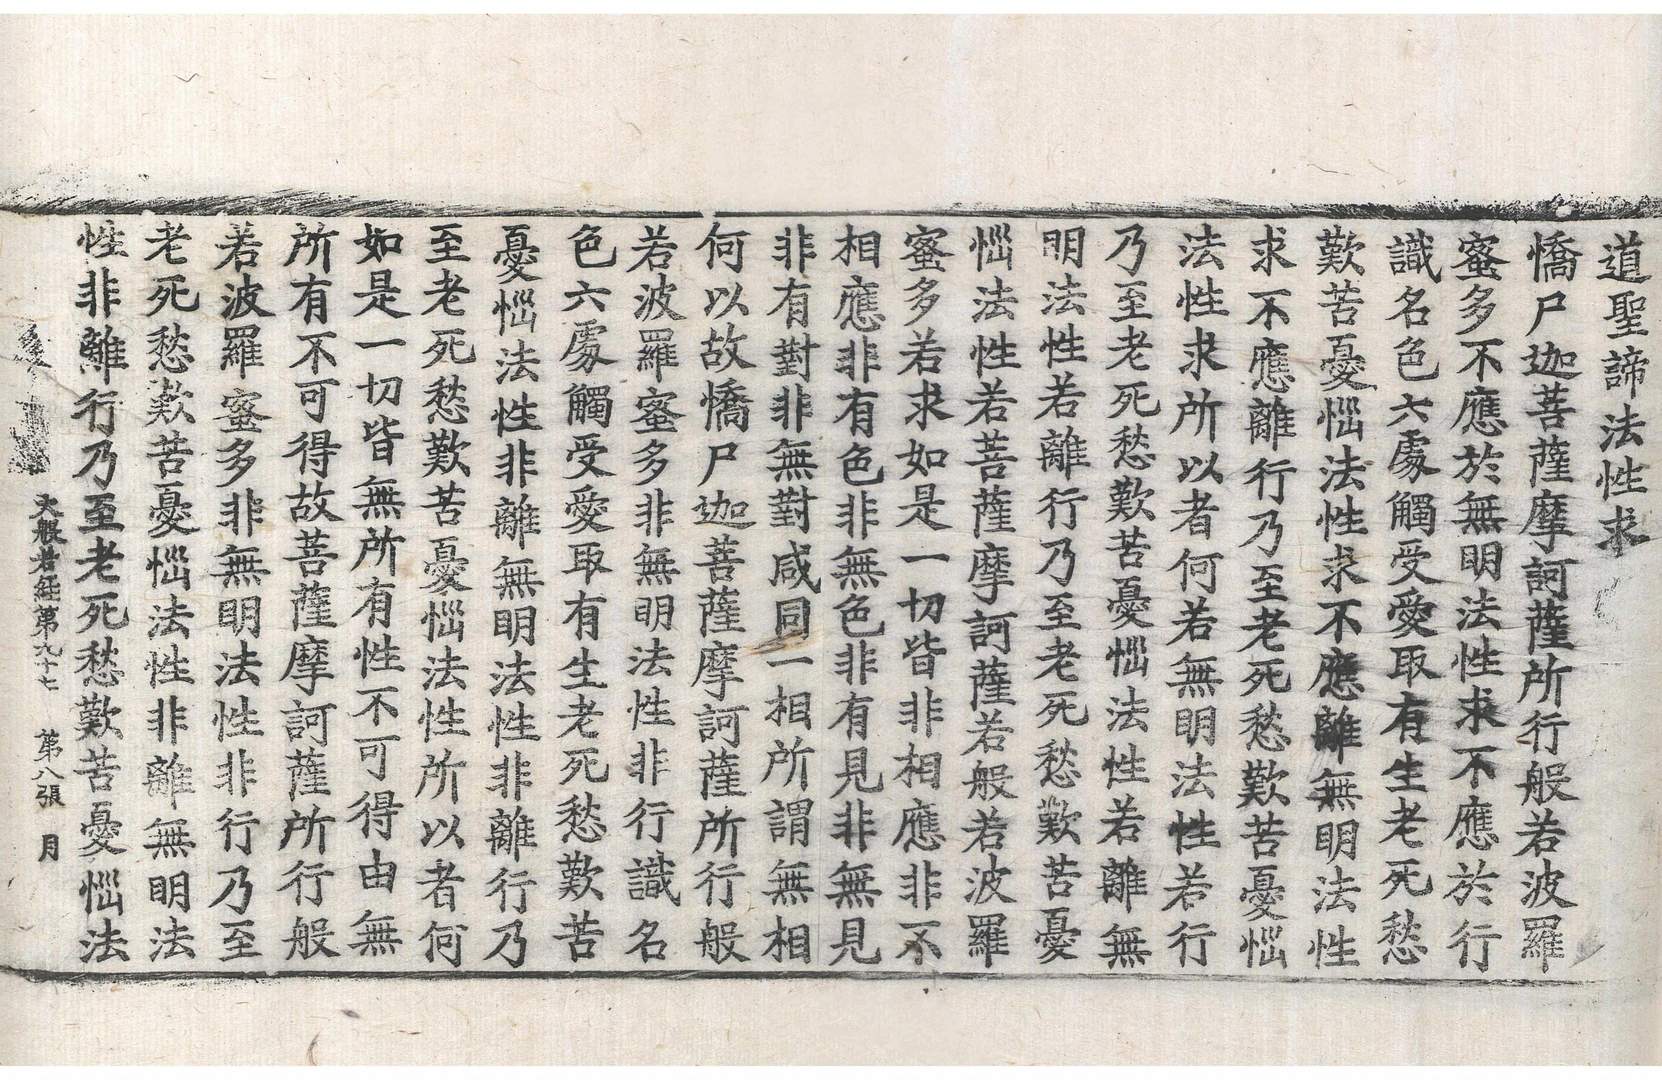 道聖諦法性求
憍尸迦菩薩摩訶薩所行般若波羅
蜜多不應於無明法性求不應於行
識名色六處觸受愛取有生老死愁
歎苦憂惱法性求不應離無明法性
求不應離行乃至老死愁歎苦憂惱
法性求所以者何若無明法性若行
乃至老死愁歎苦憂惱法性若離無
明法性若離行乃至老死愁歎苦憂
惱法性若菩薩摩訶薩若般若波羅
蜜多若求如是一切皆非相應非不
相應非有色非無色非有見非無見
非有對非無對咸同一相所謂無相
何以故憍尸迦菩薩摩訶薩所行般
若波羅蜜多非無明法性非行識名
色六處觸受愛取有生老死愁歎苦
憂惱法性非離無明法性非離行乃
至老死愁歎苦憂惱法性所以者何
如是一切皆無所有性不可得由無
所有不可得故菩薩摩訶薩所行般
若波羅蜜多非無明法性非行乃至
老死愁歎苦憂惱法性非離無明法
性非離行乃至老死愁歎苦憂惱法
大般若經第九十七 第八張 月